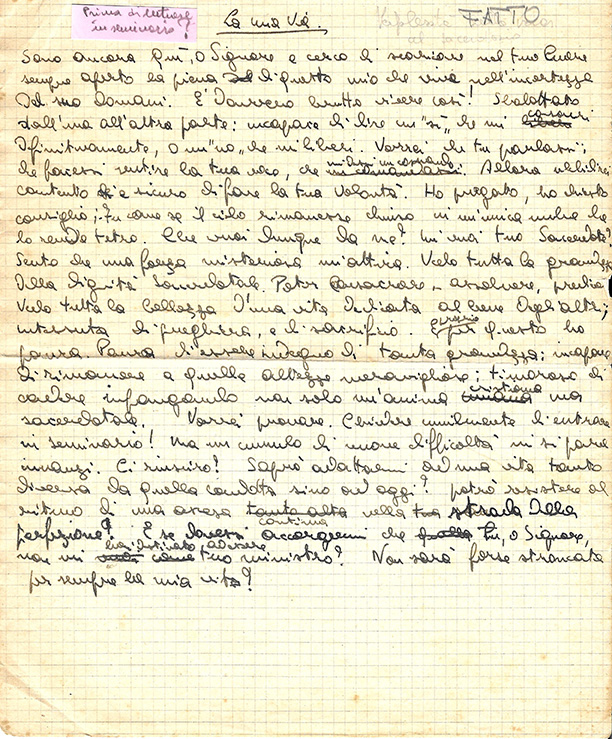 Prima di entrare
in seminario!
FATTO
al sacerdozio
La mia via.
Sono ancora qui, o Signore e cerco di scaricare nel tuo Cuore
sempre aperto la piena di questo mio che viva nell'incertezza
del suo domani. E' davvero brutto vivere così! Sballottato
dall'una all'altra parte: incapace di dire un "sì" che mi consacri
definitivamente, o un "no" che mi liberi. Vorrei che tu parlassi;
che facessi sentire la tua voce, che mi dessi un comando. Allora ubbidirei
contento e sicuro di fare la tua Volontà. Ho pregato, ho chiesto
consiglio; fu come se il cielo rimanesse chiuso in un'unica nube che
lo rende tetro. Che vuoi dunque da me? Mi vuoi tuo Sacerdote?
Sento che una forza misteriosa m'attira. Vedo tutta la grandezza
della dignità Sacerdotale. Poter consacrare, assolvere, predicare
Vedo tutta la bellezza d'una vita dedicata al bene degli altri;
intessuta di preghiera, e di sacrificio. E proprio per questo ho
paura. Paura di essere indegno di tanta grandezza; incapace
di rimanere a quelle altezze meravigliose; timoroso di
cadere infangando non solo un'anima cristiana ma
sacerdotale. Vorrei provare. Chiedere umilmente di entrare
in seminario! Ma un cumulo di nuove difficoltà mi si para
innanzi. Ci riuscirò? Saprò adattarmi ad una vita tanto
diversa da quella condotta sino ad oggi? potrò resistere al
ritmo di una ascesa continua nella strada della
perfezione? E se dovessi accorgermi che Tu, o Signore,
non mi hai destinato ad essere tuo ministro? Non sarà forse stroncata
per sempre la mia vita?